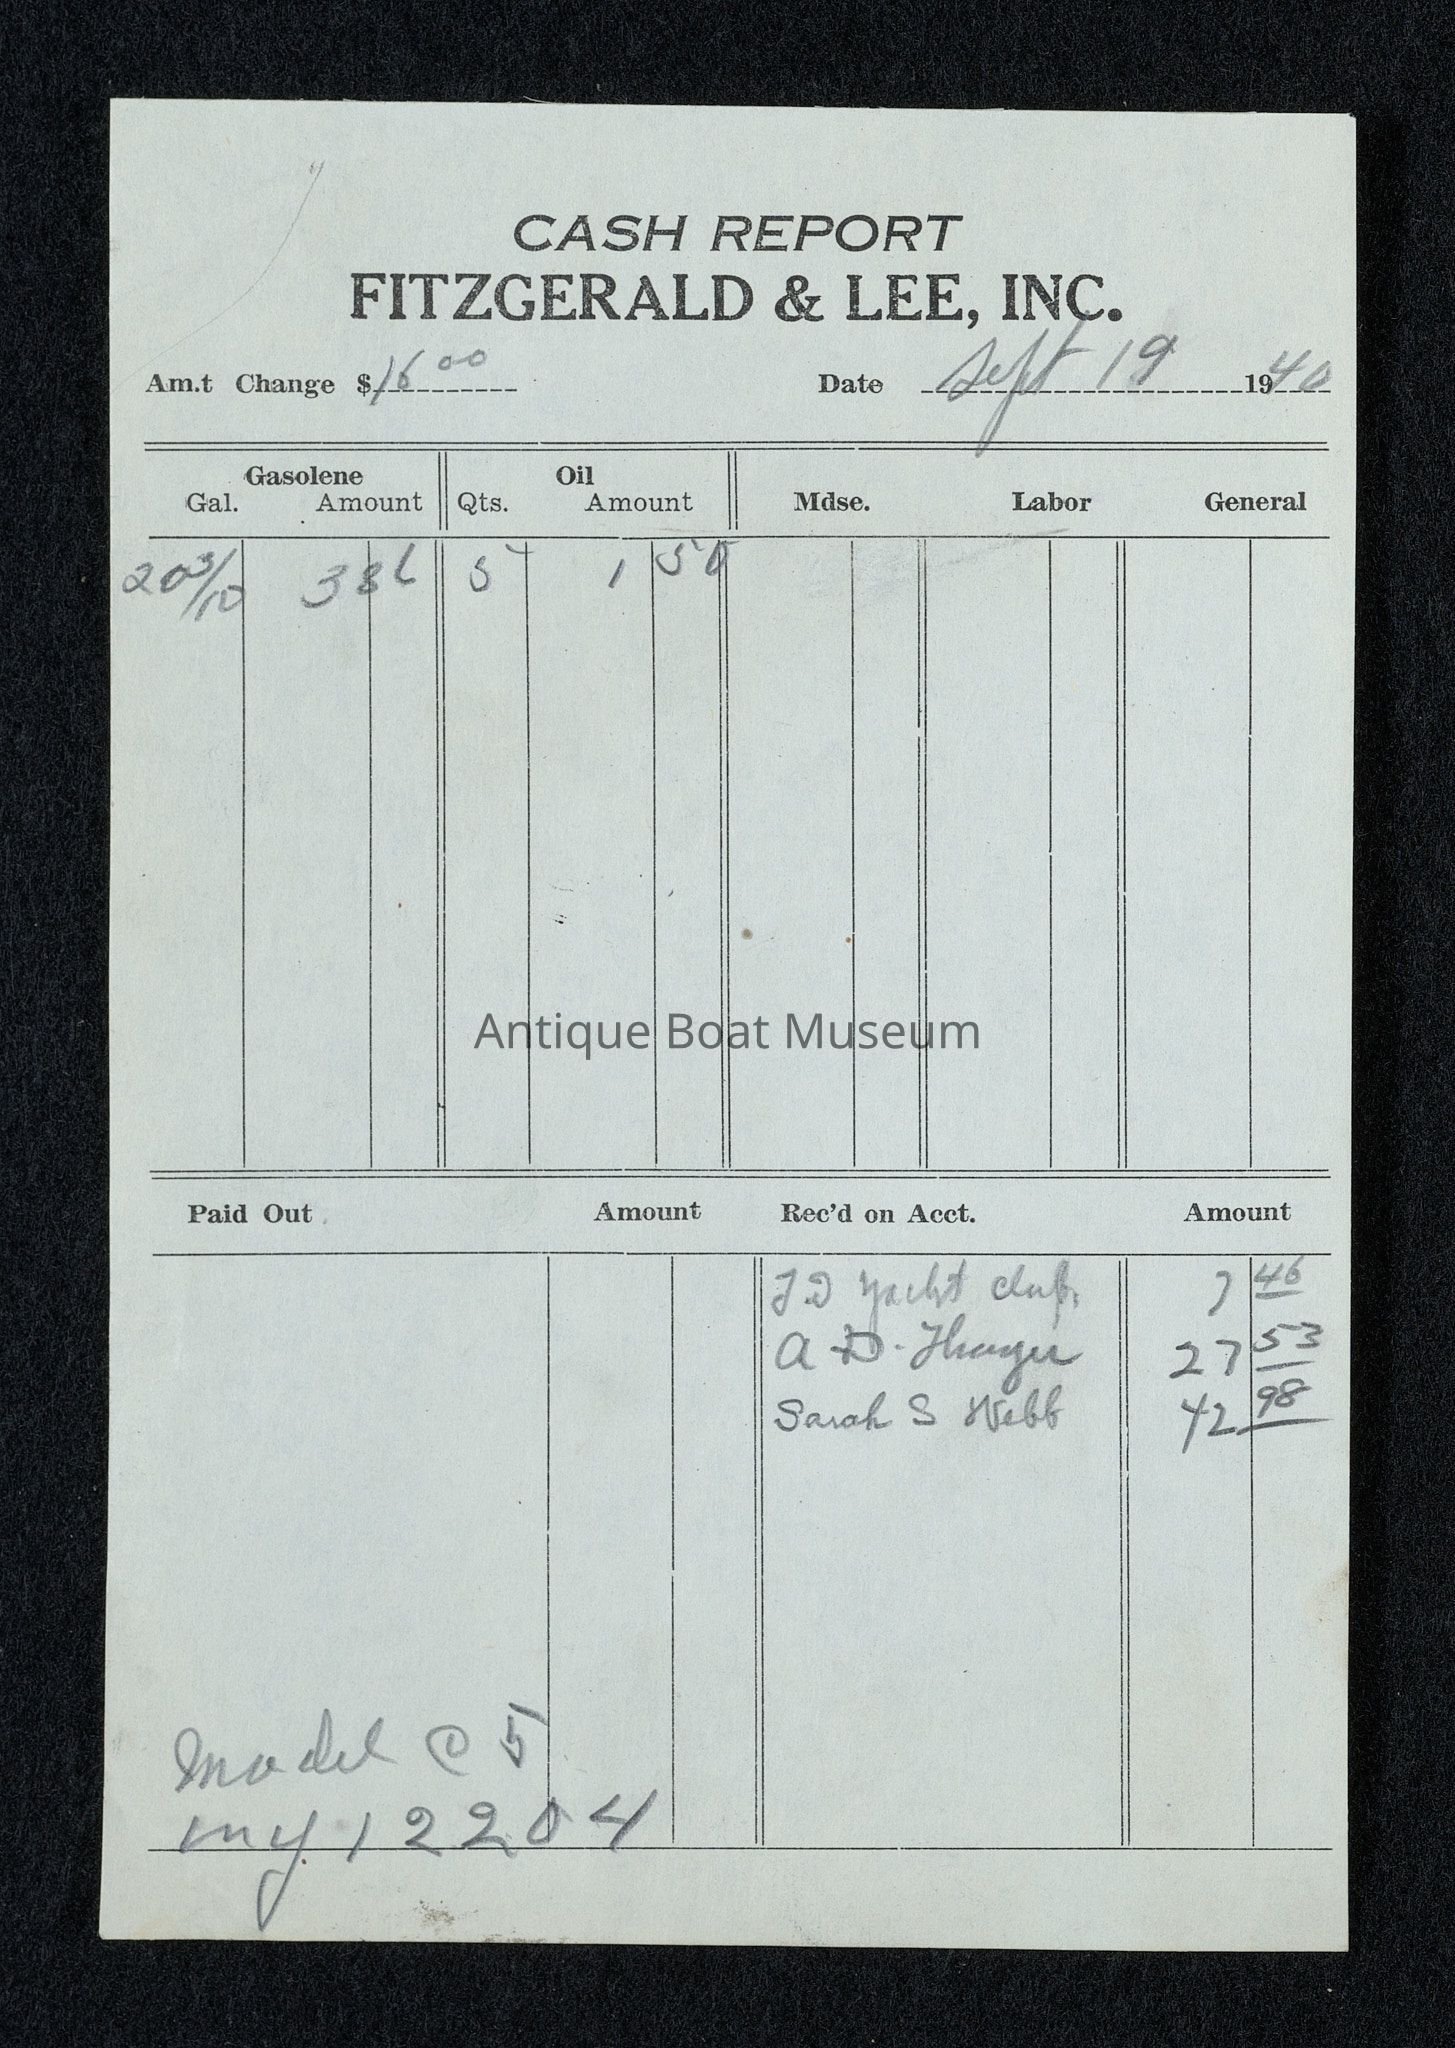 CASH REPORT
FITZGERALD & LEE, INC.
Am.t Change $16 00 Date Sept 19 1940
Gasolene Oil
Gal. Amount Qts. Amount Mdse. Labor General
20 3/10 386 5 1 50
Antique Boat Museum
Paid Out Amount Rec'd on Acct. Amount
Yacht Club 7 46
A D. Thayer 27 53
Sarah S Webb 42 98
Model C 5
my 12204